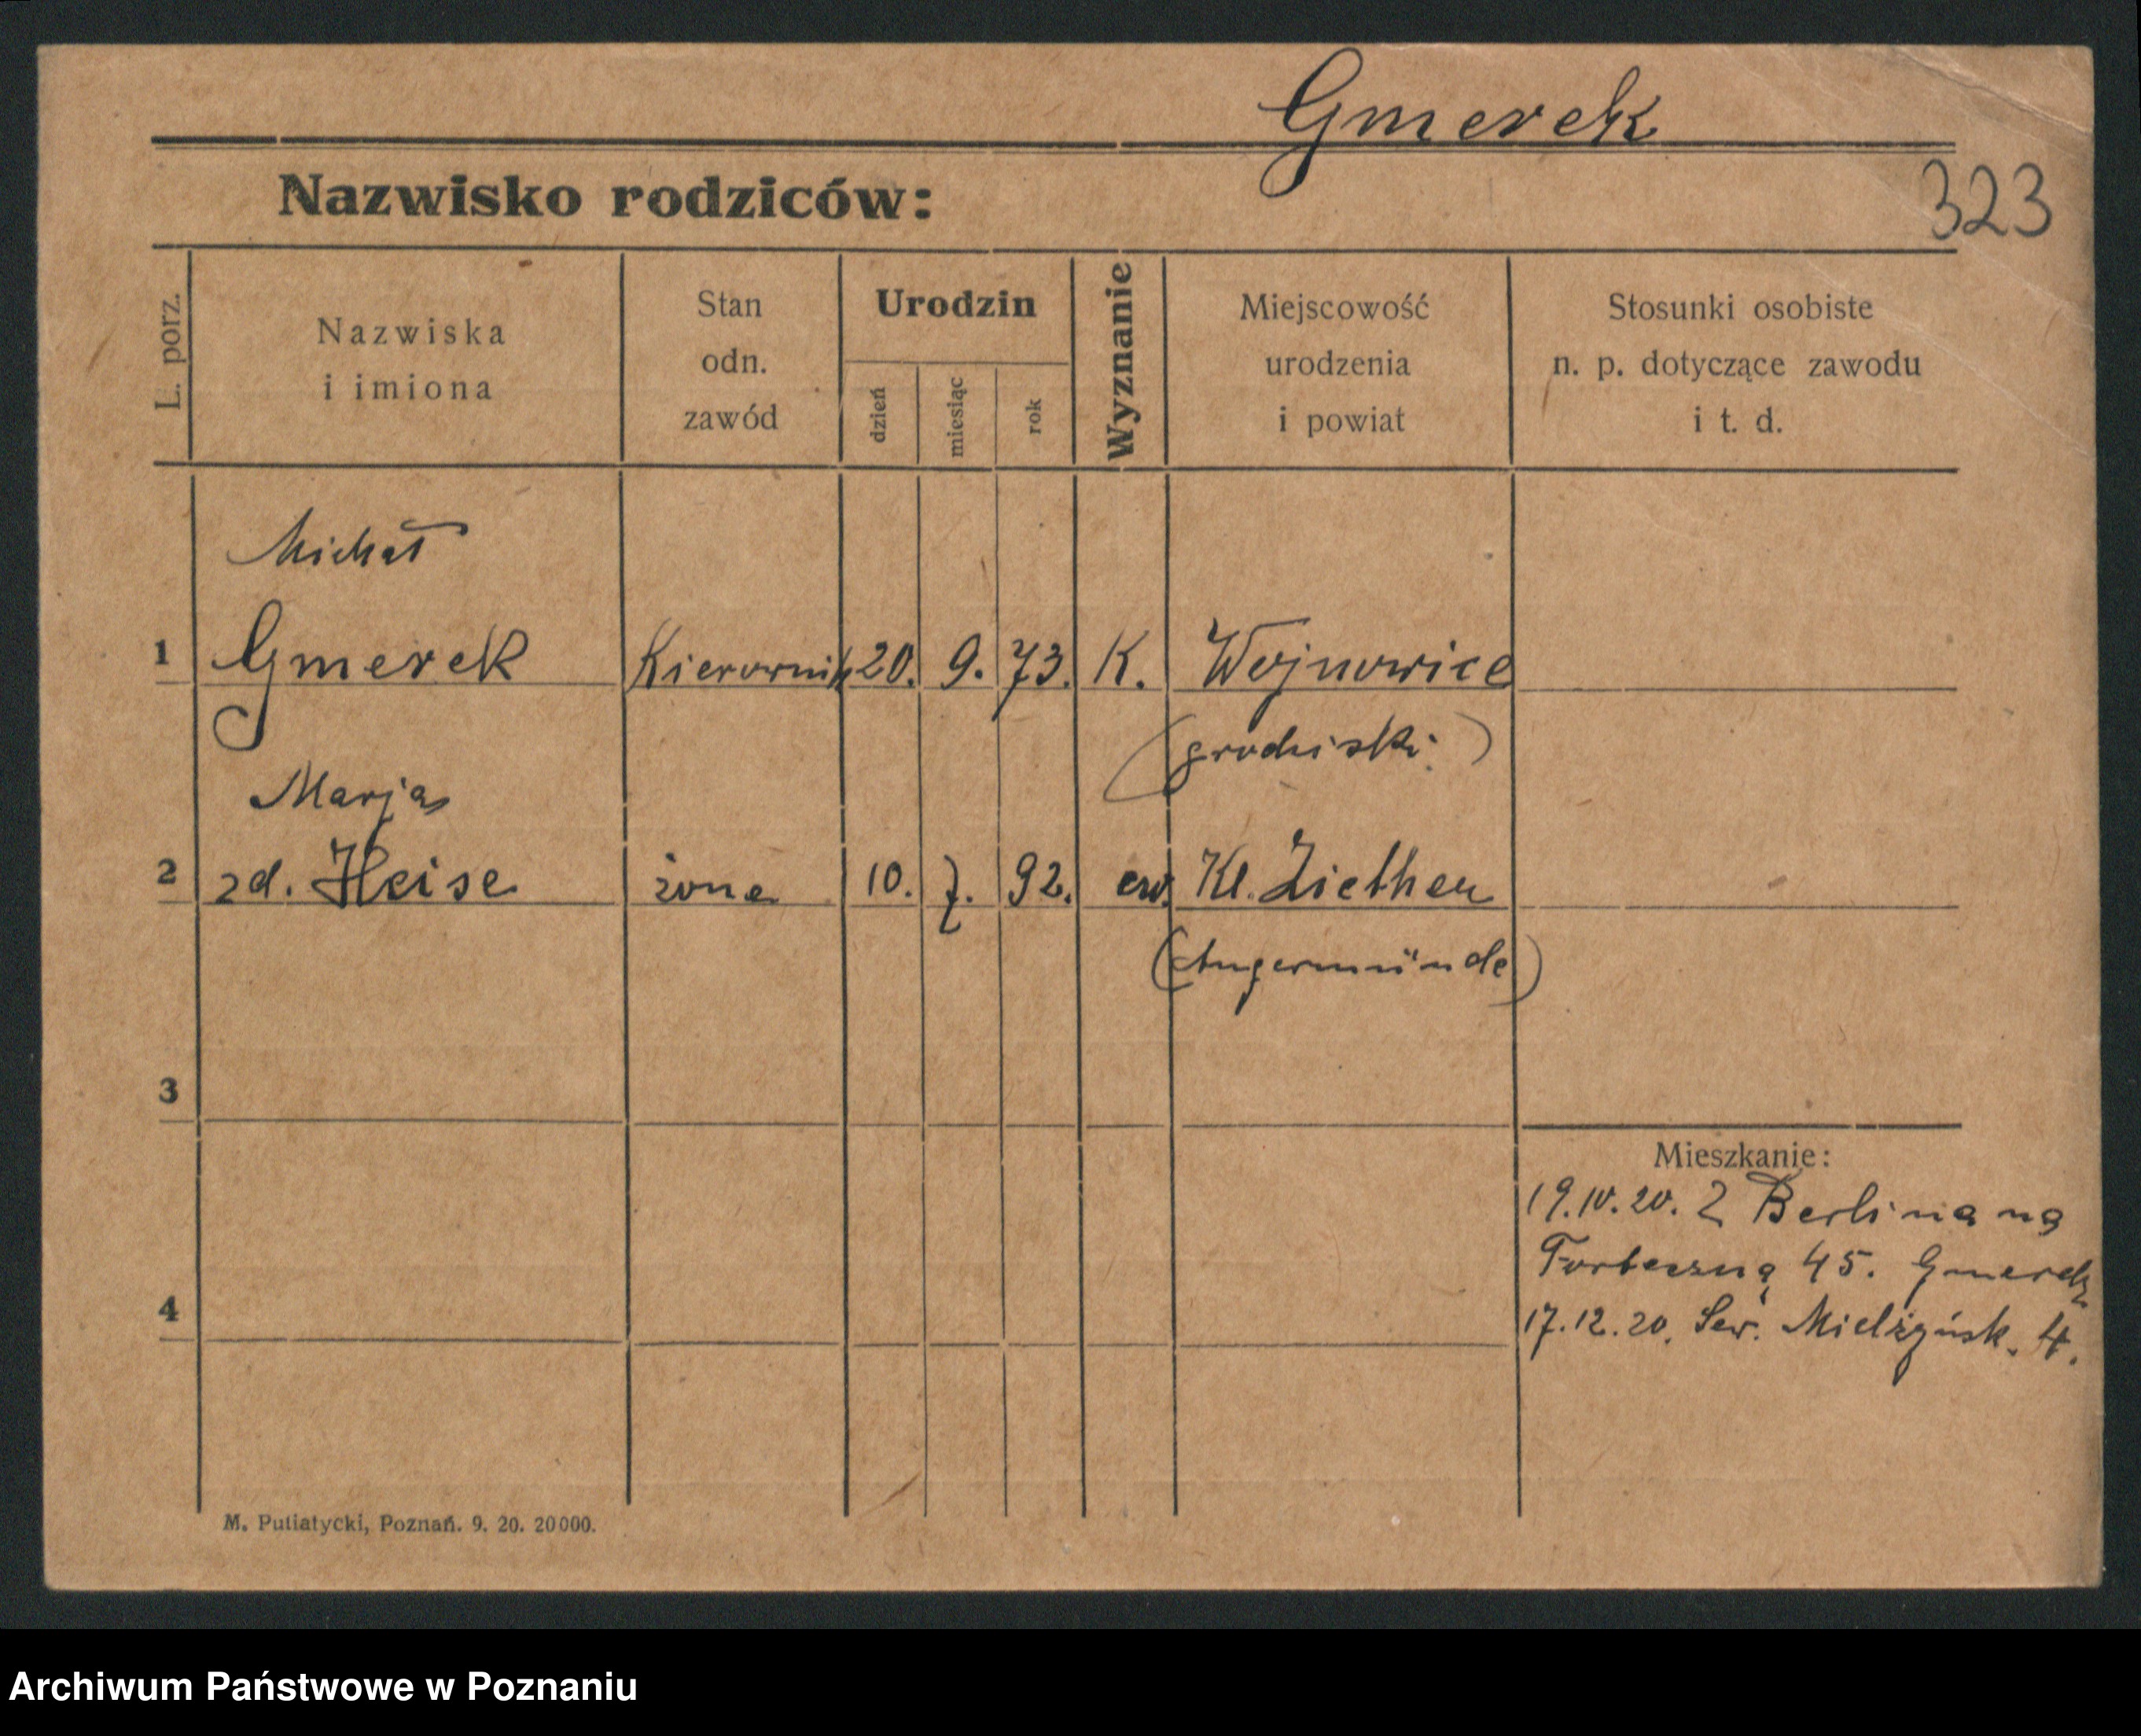 Gmerek
Nazwisko rodziców:
323
L. porz.
Nazwiska
i imiona
Stan
odn.
zawód
Urodzin
dzień
miesiąc
rok
Wyznanie
Miejscowość
urodzenia
i powiat
Stosunki osobiste
n. p. dotyczące zawodu
i t. d.
Michał
1 Gmerek Kierownik 20. 9. 73. K. Wojnowice
(grodziski)
Marja
2 zd. Heise żona 10. 7. 92. ew. Kl. Ziethen
(Angermünde)
3
Mieszkanie:
19.10.20. Z Berlina na
Forteczną 45. Gmerek
4
17.12.20. Sew. Mielżyńsk. 4.
M. Putiatycki, Poznań. 9. 20. 20000.
Archiwum Państwowe w Poznaniu